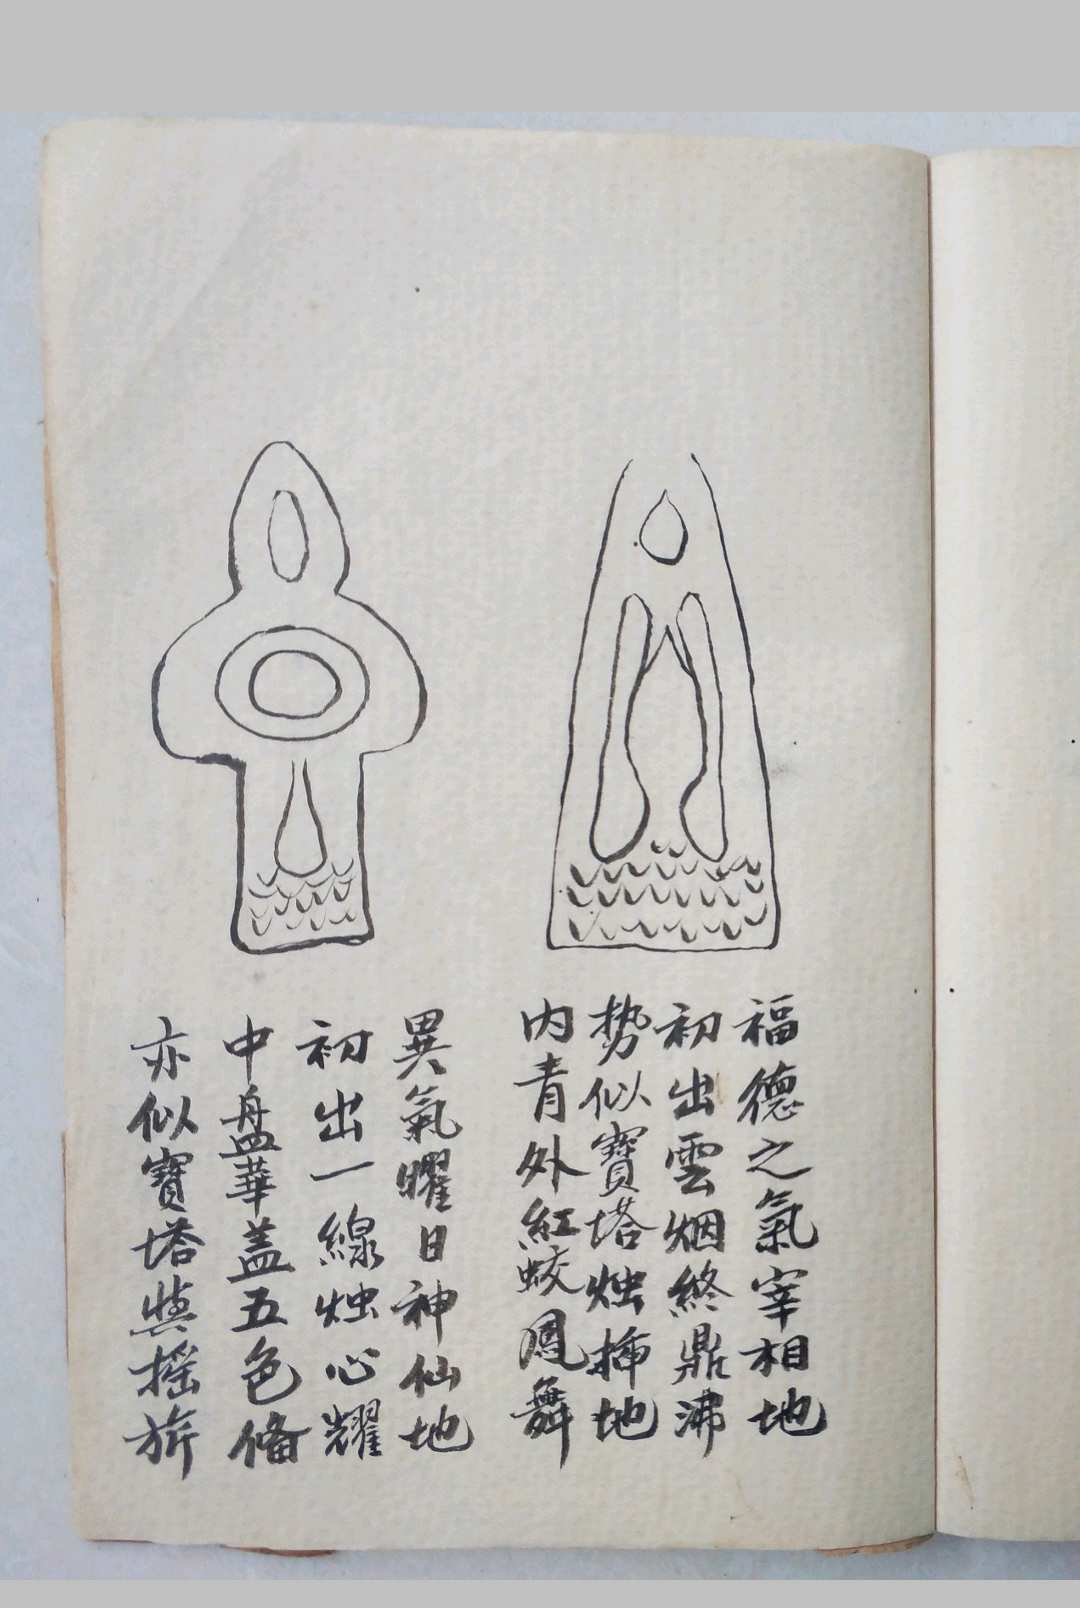 福德之氣宰相地
初出雲烟終鼎沸
势似寶塔烛插地
内青外紅蛟鳳舞
異氣曜日神仙地
初出一線烛心耀
中盘華盖五色俻
亦似寶塔與摇旂